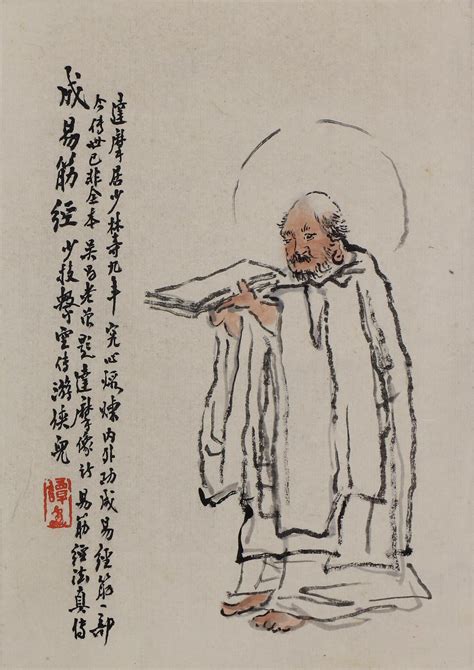 成易筋經
達摩居少林寺九年究心煅煉內外功成易經筋一部
今傳世已非全本吳缶老嘗題達摩像詩易筋經法真傳
少技擊空傳游俠兒
譚